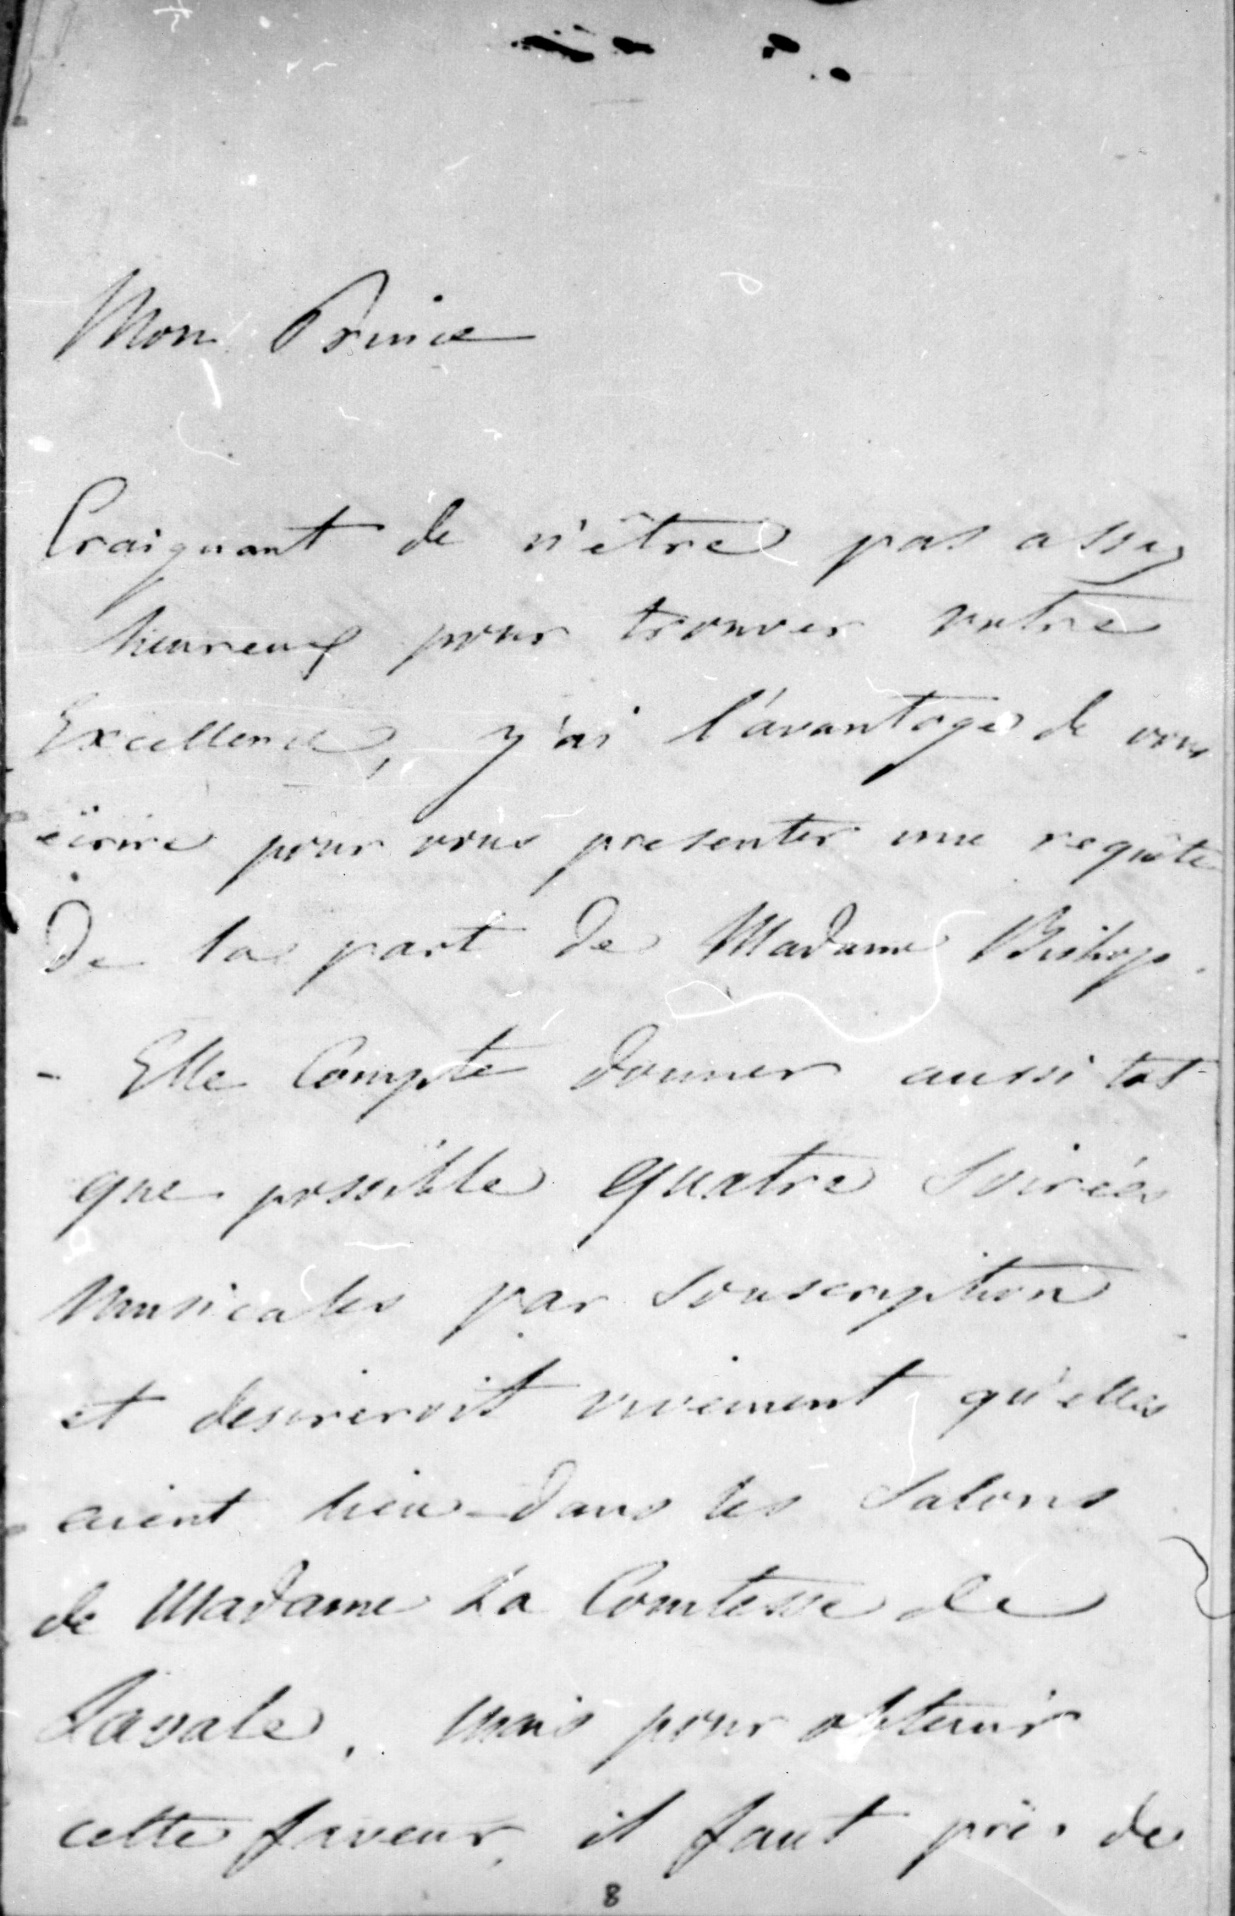 Mon Prince
Craignant de n'être pas assez
heureux pour trouver votre
Excellence, j'ai l'avantage de vous
écrire pour vous presenter une requête
De la part de Madame Bishop.
- Elle Compte donner aussi tot
que possible quatre Soirées
Musicales par Souscription
et desireroit vivement qu'elles
aient lieu dans les Salons
de Madame La Comtesse de
Lavale. Mais pour obtenir
cette faveur, il faut près de
8